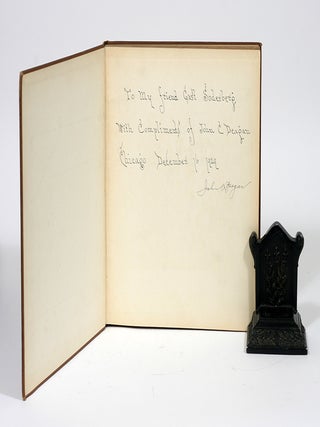 To My friend Soderberg
With Compliments of John C Deagan
Chicago December 1929
John C Deagan